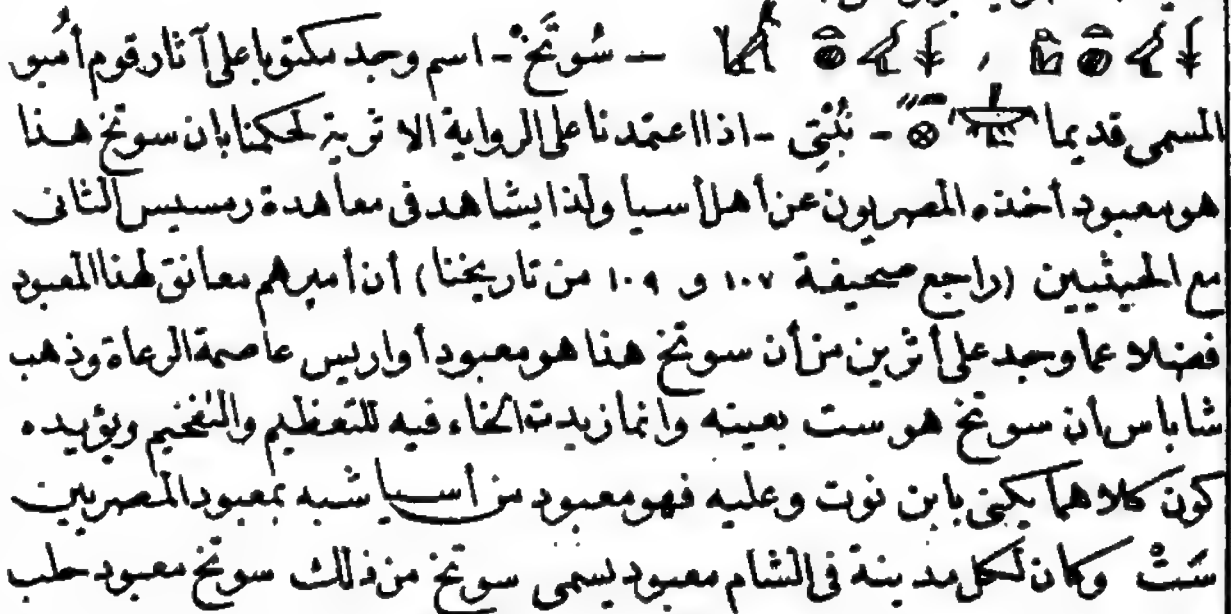 — سُوتَخْ - اسم وجد مكتوبا على آثار قوم أمبو
المسمى قديما - نُبْتِى - اذا اعتمدنا على الرواية الاثرية لحكمنا بان سوتخ هذا
هو معبود أخذه المصريون عن أهل أسيا ولذا يشاهد فى معاهدة رمسيس الثانى
مع الحيثيين (راجع صحيفة ١٠٧ و ١٠٩ من تاريخنا) أن أميرهم معانق لهذا المعبود
فضلا عما وجد على أثرين من أن سوتخ هذا هو معبود أواريس عاصمة الرعاة وذهب
شاباس ان سوتخ هو ست بعينه وانما زيدت الخاء فيه للتعظيم والتفخيم ويؤيده
كون كلاهما يكنى بابن نوت وعليه فهو معبود من أسيا شبه بمعبود المصريين
سَتْ وكان لكل مدينة فى الشام معبود يسمى سوتخ من ذلك سوتخ معبود حلب